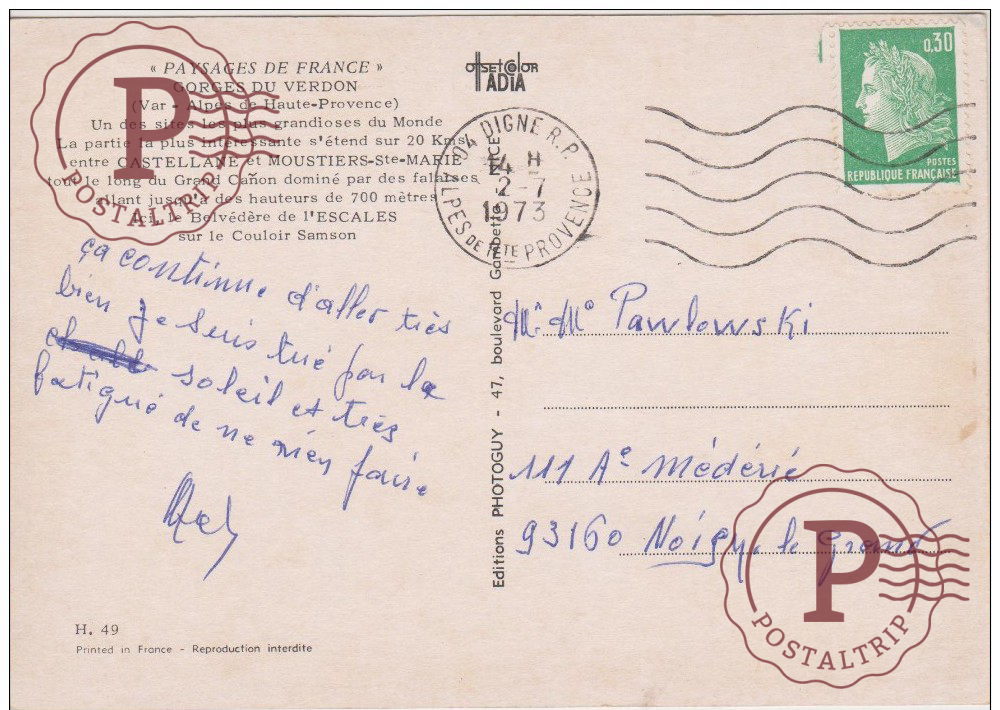 « PAYSAGES DE FRANCE »
GORGES DU VERDON
(Var - Alpes de Haute-Provence)
Un des sites les plus grandioses du Monde
La partie la plus intéressante s'étend sur 20 Kms
entre CASTELLANE et MOUSTIERS-Ste-MARIE
tout le long du Grand Cañon dominé par des falaises
allant jusqu'à des hauteurs de 700 mètres
Ici, le Belvédère de l'ESCALES
sur le Couloir Samson
ça continue d'aller très
bien je suis tué par la
soleil et très
fatigué de ne rien faire
H. 49
Printed in France - Reproduction interdite
OFFSETCOLOR
TADIA
Editions PHOTOGUY - 47, boulevard Gambetta
04 DIGNE R.P.
14 H
2-7
1973
ALPES DE HTE PROVENCE
0,30
POSTES
REPUBLIQUE FRANÇAISE
Mr. Me Pawlowski
111 Ae Médéric
93160 Noisy le Grand
P
POSTALTRIP
P
POSTALTRIP